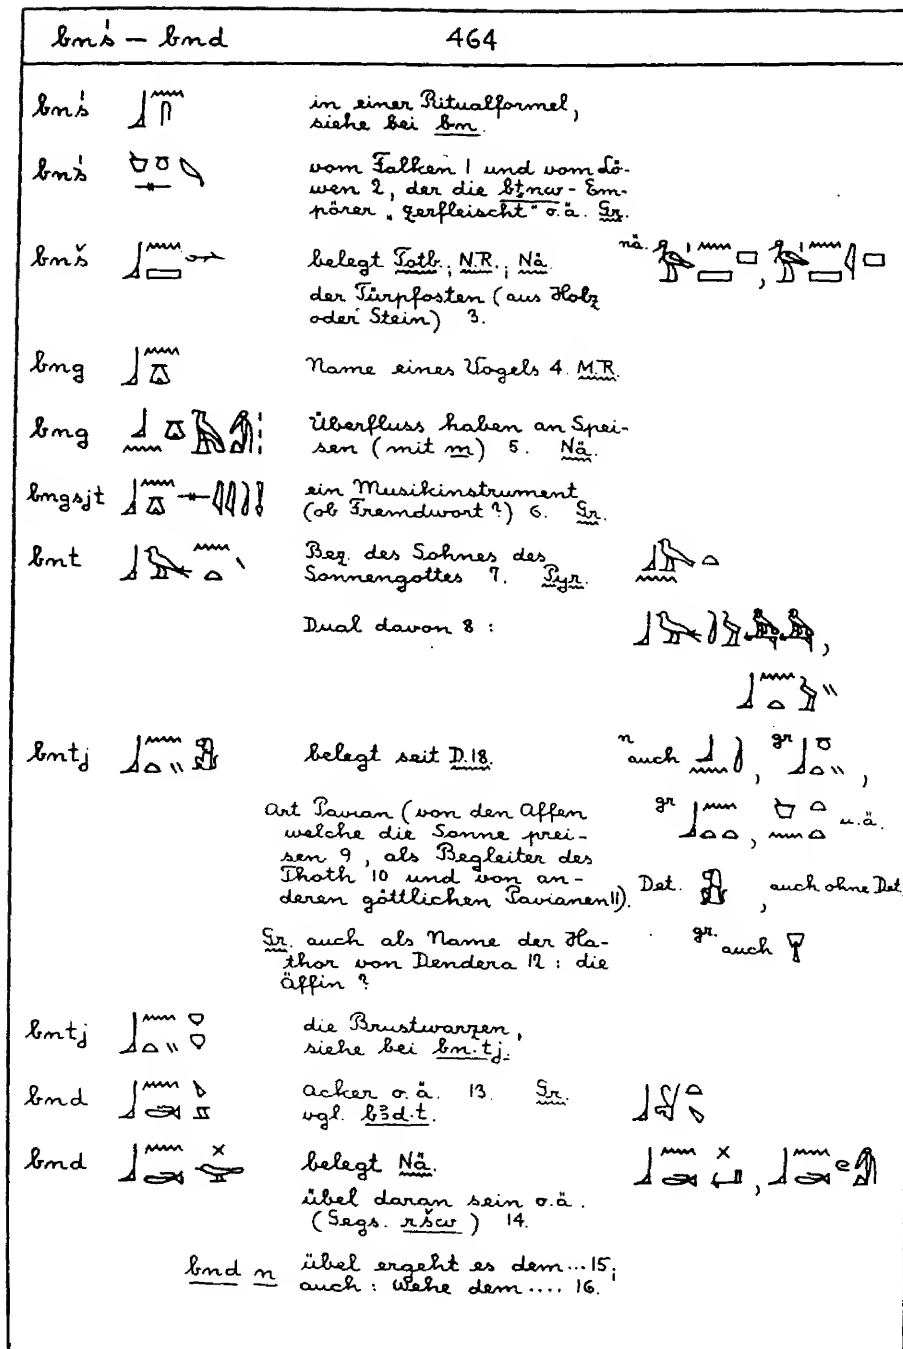 bnś – bnd 464
bnś in einer Ritualformel,
siehe bei bn.
bnś vom Falken 1 und vom Lö-
wen 2, der die bṯnw-Em-
pörer „zerfleischt" o.ä. Gr.
bnš belegt Totb.; N.R.; Nä. nä.
der Türpfosten (aus Holz
oder Stein) 3.
bng Name eines Vogels 4. M.R.
bng Überfluss haben an Spei-
sen (mit m) 5. Nä.
bngsjt ein Musikinstrument
(ob Fremdwort?) 6. Gr.
bnt Bez. des Sohnes des
Sonnengottes 7. Pyr.
Dual davon 8 :
bntj belegt seit D.18. n auch , gr ,
Art Pavian (von den Affen gr , u.ä.
welche die Sonne prei-
sen 9, als Begleiter des
Thoth 10 und von an- Det. , auch ohne Det.
deren göttlichen Pavianen 11).
Gr. auch als Name der Ha- gr. auch
thor von Dendera 12 : die
Äffin ?
bntj die Brustwarzen,
siehe bei bn.tj.
bnd Acker o.ä. 13. Gr.
vgl. bꜣd.t.
bnd belegt Nä.
übel daran sein o.ä.
(Gegs. ršw) 14.
bnd n übel ergeht es dem... 15;
auch : Wehe dem.... 16.